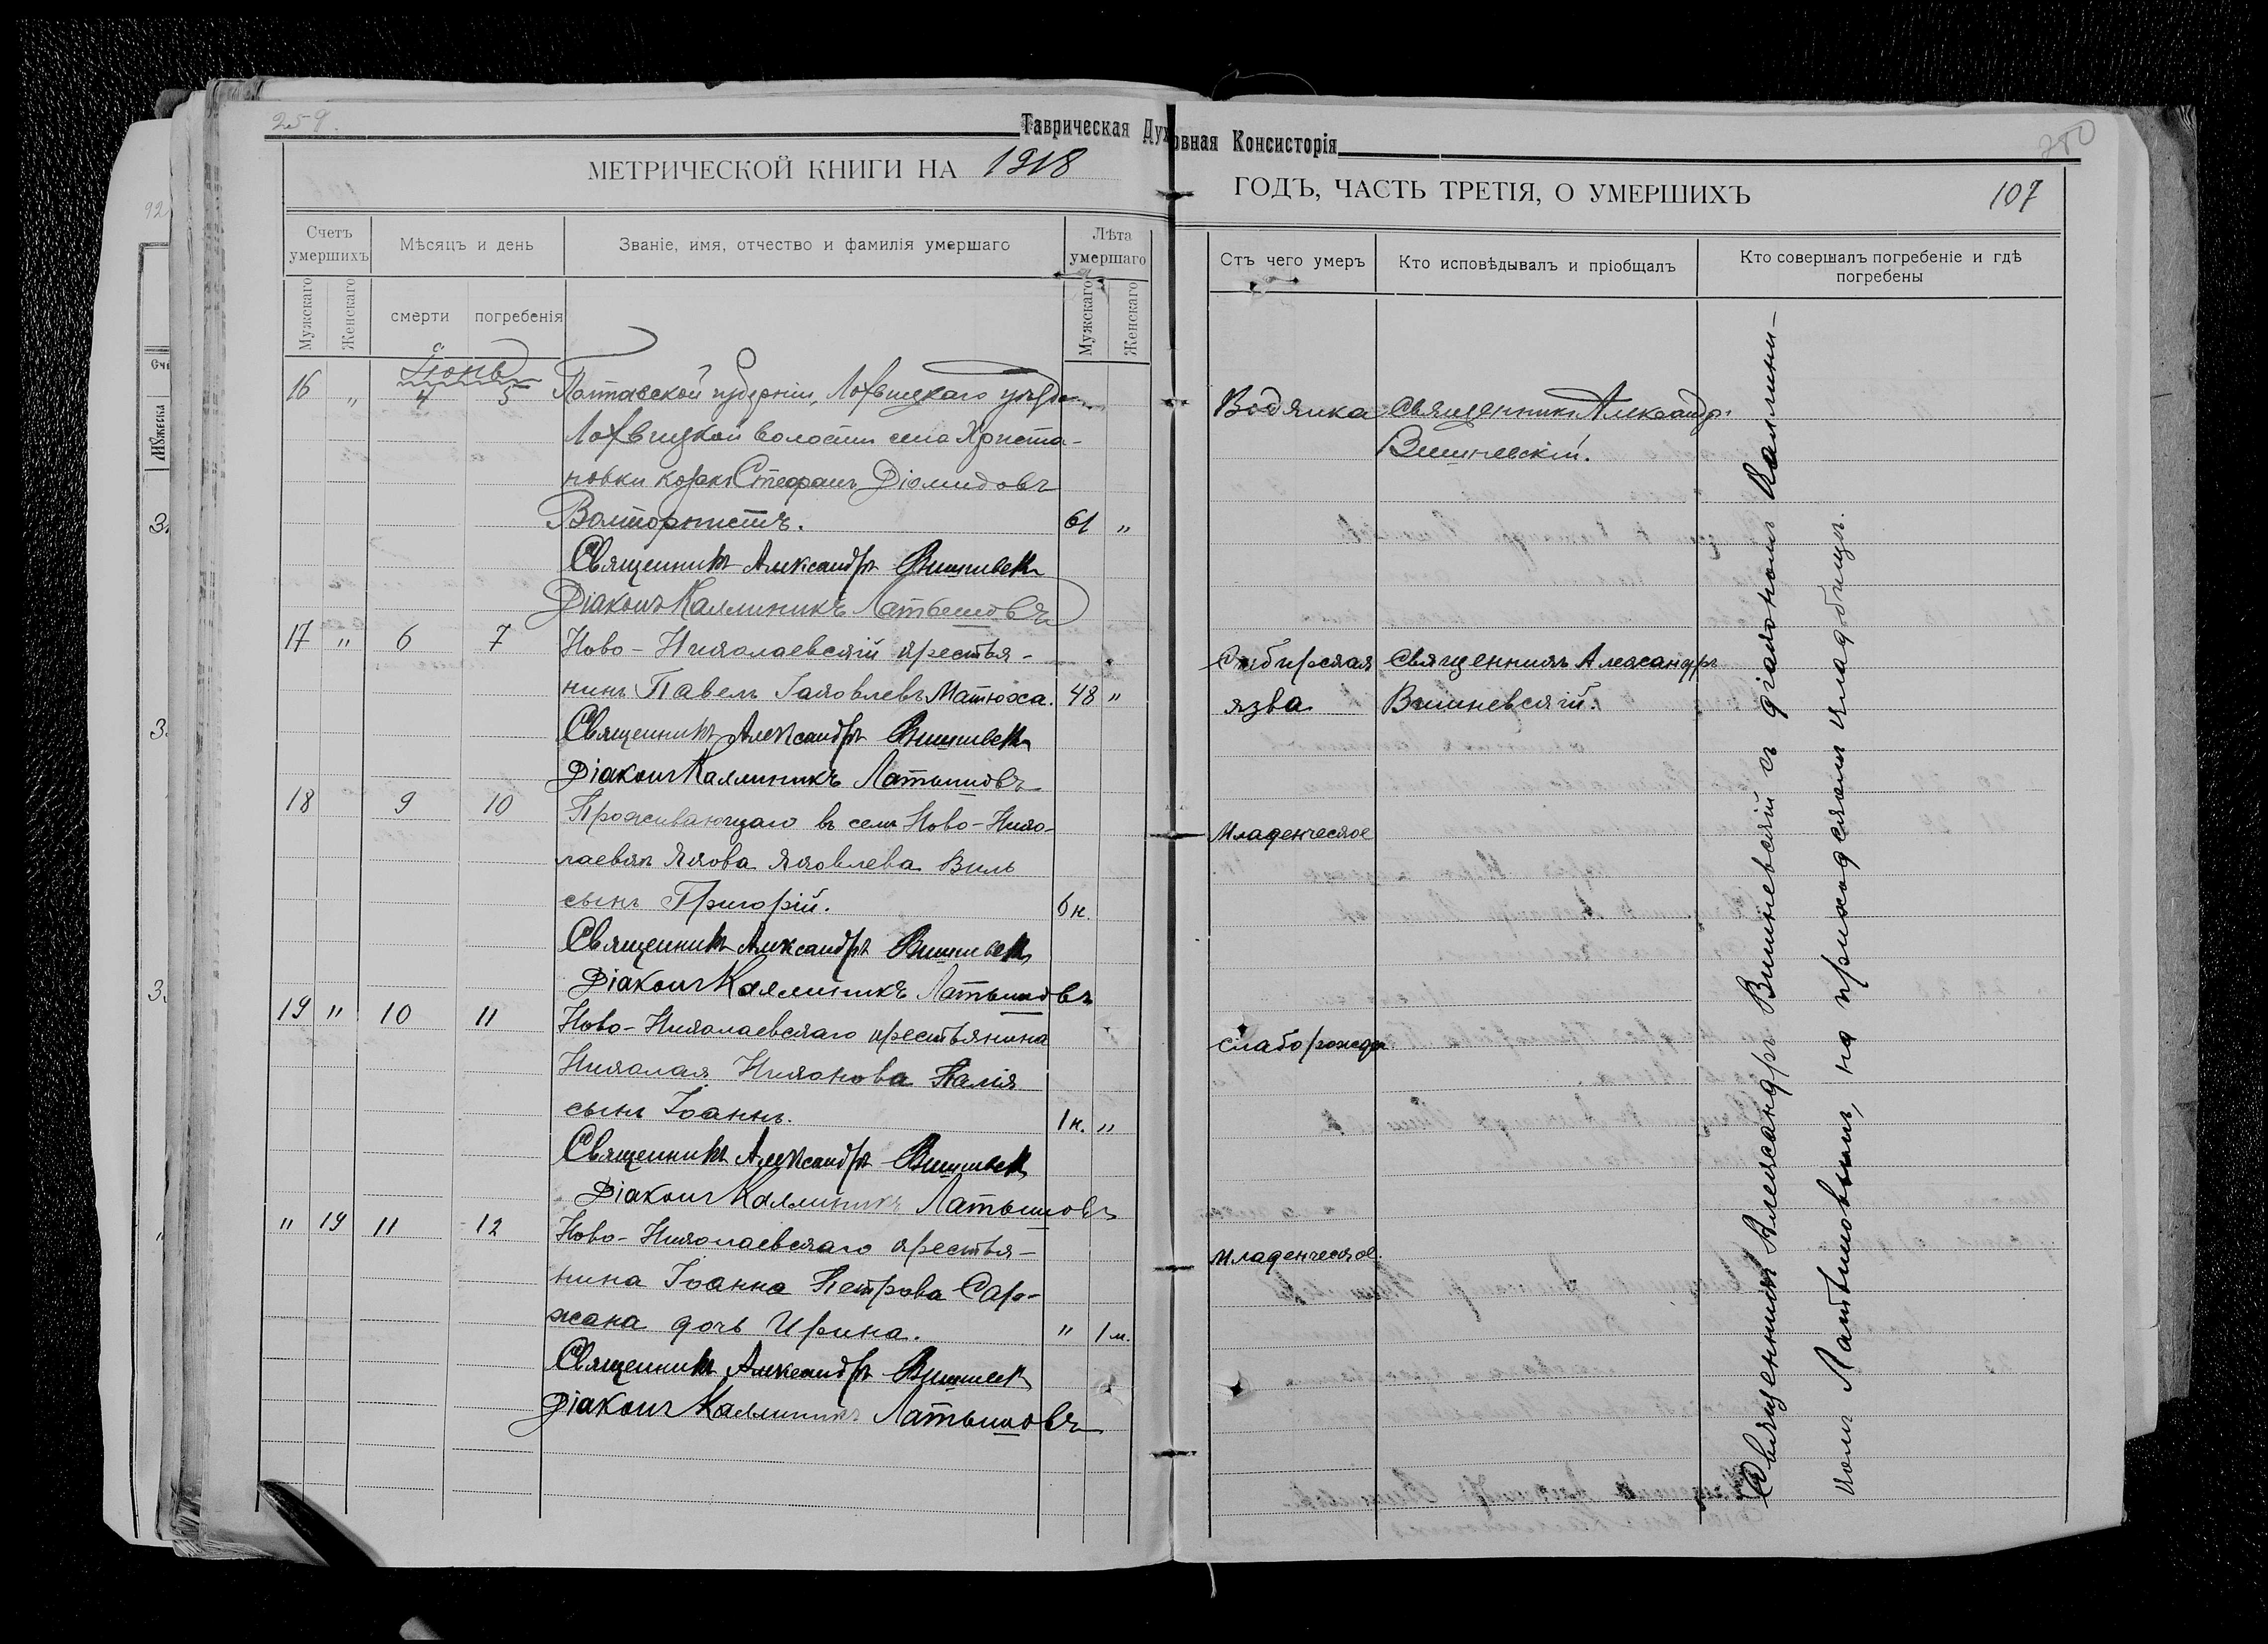 259.
Таврическая Духовная Консисторія
280
МЕТРИЧЕСКОЙ КНИГИ НА 1918
ГОДЪ, ЧАСТЬ ТРЕТІЯ, О УМЕРШИХЪ
107
Счетъ умершихъ
Мѣсяцъ и день
Званіе, имя, отчество и фамилія умершаго
Лѣта умершаго
Мужскаго
Женскаго
смерти
погребенія
Мужскаго
Женскаго
Отъ чего умеръ
Кто исповѣдывалъ и пріобщалъ
Кто совершалъ погребеніе и гдѣ
погребены
Іюнь
16 " 4 5 Полтавской губерніи, Лохвицкаго уѣзда
Лохвицкой волости села Христа-
новки козакъ Стефанъ Діомидовъ
Валторнистъ. 61 "
Священникъ Александръ Вишневск
Діаконъ Каллиникъ Латышовъ
17 " 6 7 Ново-Николаевскій крестья-
нинъ Павелъ Іаковлевъ Матюха. 48 "
Священникъ Александръ Вишневск
Діаконъ Каллиникъ Латышовъ
18 9 10 Проживающаго въ селѣ Ново-Нико-
лаевкѣ Якова Яковлева Виль
сынъ Григорій. 6 н.
Священникъ Александръ Вишневск
Діаконъ Каллиникъ Латышовъ
19 " 10 11 Ново-Николаевскаго крестьянина
Николая Никонова Палія
сынъ Іоаннъ. 1 н. "
Священникъ Александръ Вишневск
Діаконъ Каллиникъ Латышовъ
" 19 11 12 Ново-Николаевскаго крестья-
нина Іоанна Петрова Сар-
жана дочь Ирина. " 1 м.
Священникъ Александръ Вишневск
Діаконъ Каллиникъ Латышовъ
Водянка Священникъ Александръ
Вишневскій.
Сибирская Священникъ Александръ
язва Вишневскій.
Младенческое
слаборожден.
младенческое.
Священникъ Александръ Вишневскій съ діакономъ Каллини-
комъ Латышовымъ, на приходскомъ кладбищѣ.